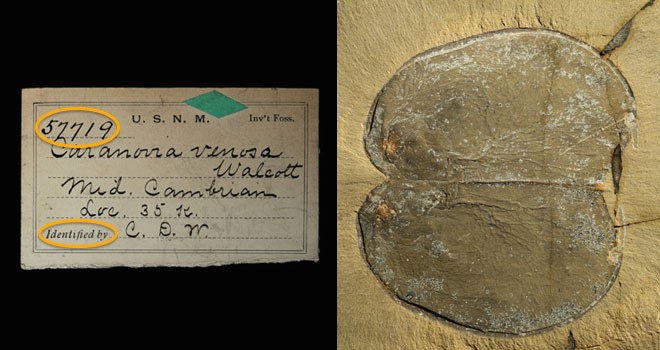 57719 U. S. N. M. Inv't Foss.
venosa
Walcott
Mid. Cambrian
Loc. 35 k.
Identified by C. D. W.